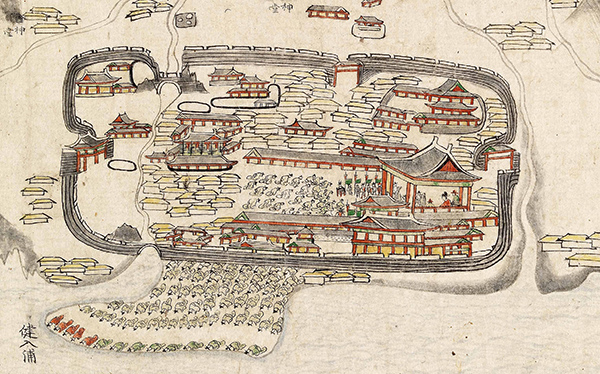 神堂
神堂
健入浦